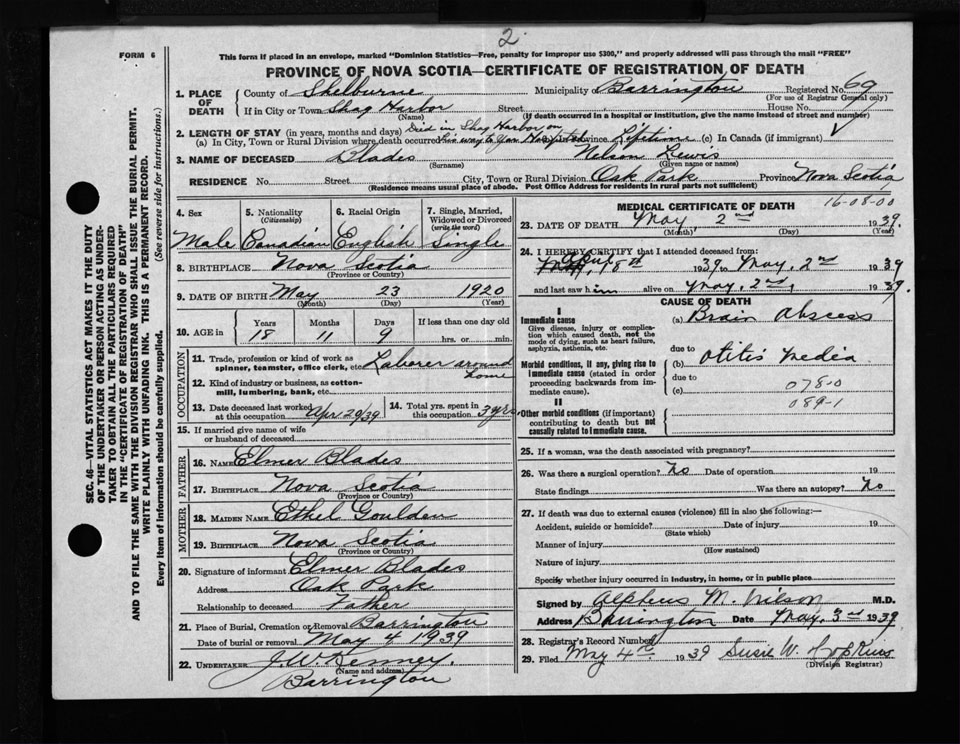 2
FORM 6
This form if placed in an envelope, marked "Dominion Statistics—Free, penalty for improper use $300," and properly addressed will pass through the mail "FREE"
PROVINCE OF NOVA SCOTIA—CERTIFICATE OF REGISTRATION OF DEATH
SEC. 46—VITAL STATISTICS ACT MAKES IT THE DUTY
OF THE UNDERTAKER OR PERSON ACTING AS UNDER-
TAKER TO OBTAIN ALL THE PARTICULARS REQUIRED
IN THE "CERTIFICATE OF REGISTRATION OF DEATH"
AND TO FILE THE SAME WITH THE DIVISION REGISTRAR WHO SHALL ISSUE THE BURIAL PERMIT.
WRITE PLAINLY WITH UNFADING INK. THIS IS A PERMANENT RECORD.
Every item of information should be carefully supplied. (See reverse side for instructions.)
1. PLACE OF DEATH County of Shelburne Municipality Barrington Registered No. 69
(For use of Registrar General only)
If in City or Town Shag Harbor Street House No.
(Name) (If death occurred in a hospital or institution, give the name instead of street and number)
2. LENGTH OF STAY (in years, months and days) Died in Shag Harbor on
(a) In City, Town or Rural Division where death occurred his way to Yar Hospital Province Lifetime (c) In Canada (if immigrant)
3. NAME OF DECEASED Blades Nelson Lewis
(Surname) (Given name or names)
RESIDENCE No. Street City, Town or Rural Division Oak Park Province Nova Scotia
(Residence means usual place of abode. Post Office Address for residents in rural parts not sufficient)
4. Sex 5. Nationality (Citizenship) 6. Racial Origin 7. Single, Married, Widowed or Divorced (write the word)
Male Canadian English Single
8. BIRTHPLACE Nova Scotia
(Province or Country)
9. DATE OF BIRTH May 23 1920
(Month) (Day) (Year)
10. AGE in Years Months Days If less than one day old
18 11 9 hrs. or min.
OCCUPATION
11. Trade, profession or kind of work as spinner, teamster, office clerk, etc. Laborer around home
12. Kind of industry or business, as cotton-mill, lumbering, bank, etc.
13. Date deceased last worked at this occupation Apr 29/39 14. Total yrs. spent in this occupation 3 yrs
15. If married give name of wife
or husband of deceased
FATHER
16. NAME Elmer Blades
17. BIRTHPLACE Nova Scotia
(Province or Country)
MOTHER
18. MAIDEN NAME Ethel Goulden
19. BIRTHPLACE Nova Scotia
(Province or Country)
20. Signature of informant Elmer Blades
Address Oak Park
Relationship to deceased Father
21. Place of Burial, Cremation or Removal Barrington
Date of burial or removal May 4 1939
22. UNDERTAKER J. W. Kenney,
(Name and address)
Barrington
MEDICAL CERTIFICATE OF DEATH 16-08-00
23. DATE OF DEATH May 2nd 1939
(Month) (Day) (Year)
24. I HEREBY CERTIFY that I attended deceased from:
April 18th 1939 to May, 2nd 1939
and last saw him alive on May, 2nd, 1939.
CAUSE OF DEATH
I
Immediate cause (a) Brain Abscess
Give disease, injury or complication which caused death, not the mode of dying, such as heart failure, asphyxia, asthenia, etc.
due to
Morbid conditions, if any, giving rise to immediate cause (stated in order proceeding backwards from immediate cause). (b) otitis media
due to
(c) 078-0
089-1
II
Other morbid conditions (if important) contributing to death but not causally related to immediate cause.
25. If a woman, was the death associated with pregnancy?
26. Was there a surgical operation? No Date of operation 19
State findings Was there an autopsy? No
27. If death was due to external causes (violence) fill in also the following:—
Accident, suicide or homicide? Date of injury 19
(State which)
Manner of injury
(How sustained)
Nature of injury
Specify whether injury occurred in industry, in home, or in public place
Signed by Alpheus M. Wilson M.D.
Address Barrington Date May, 3rd 1939
28. Registrar's Record Number
29. Filed May 4th 1939 Susie W. Hopkins
(Division Registrar)